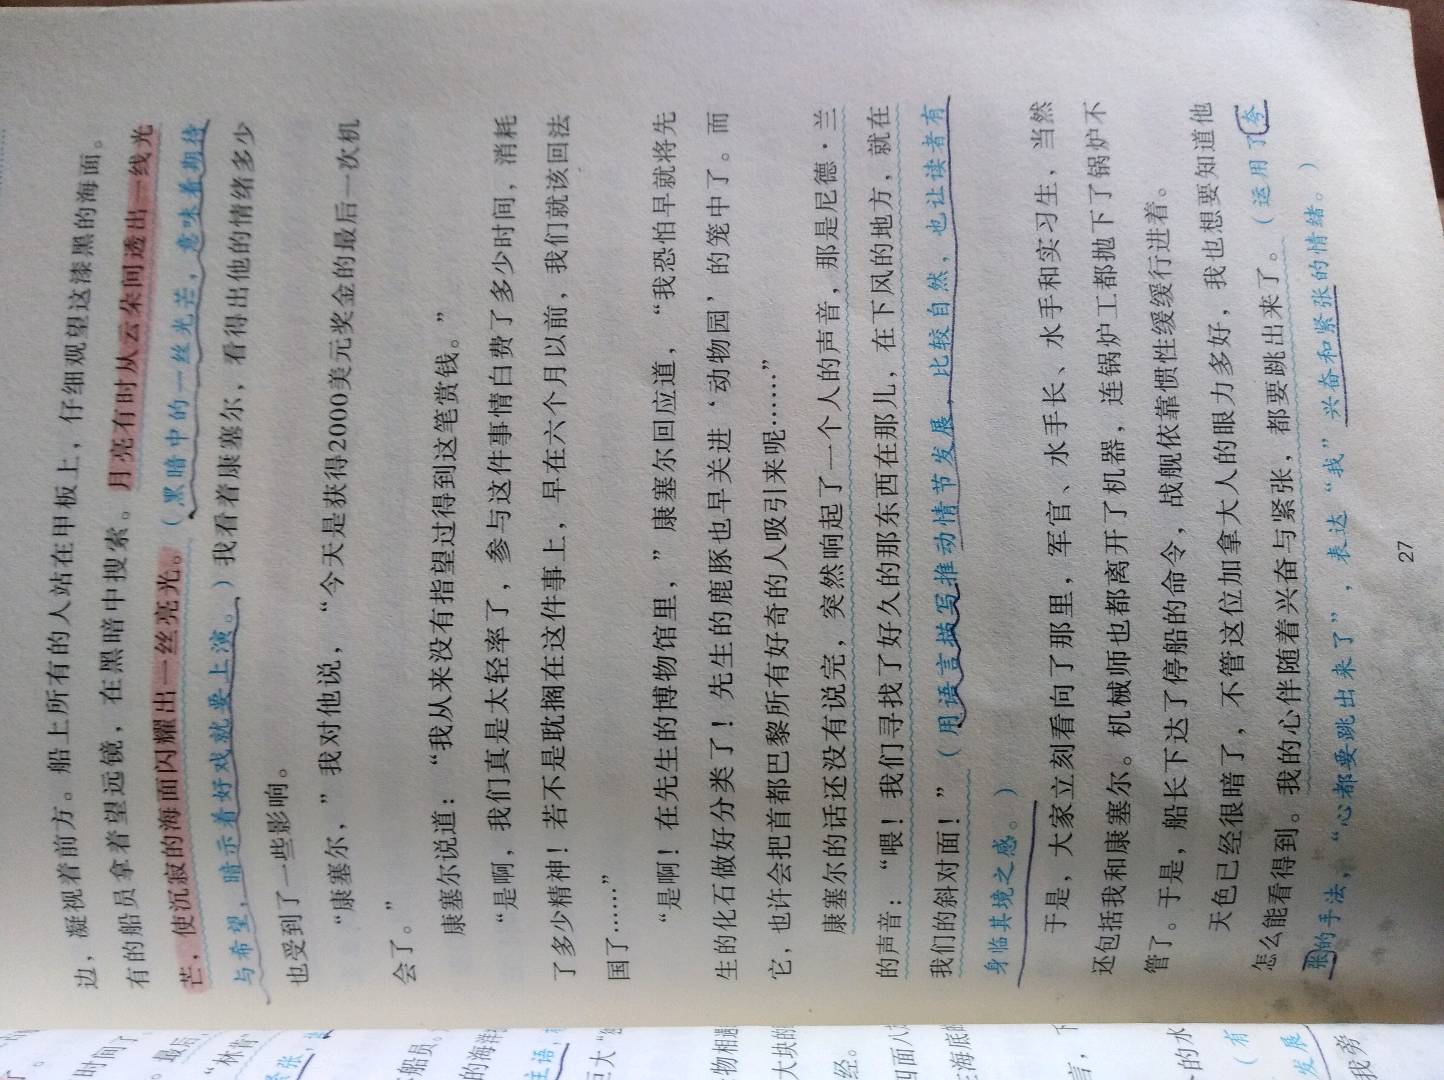 边，凝视着前方。船上所有的人站在甲板上，仔细观望这漆黑的海面。
有的船员拿着望远镜，在黑暗中搜索。月亮有时从云朵间透出一线光
芒，使沉寂的海面闪耀出一丝亮光。（黑暗中的一丝光芒，意味着期待
与希望，暗示着好戏就要上演。）我看着康塞尔，看得出他的情绪多少
也受到了一些影响。
“康塞尔，”我对他说，“今天是获得2000美元奖金的最后一次机
会了。”
康塞尔说道：“我从来没有指望过得到这笔赏钱。”
“是啊，我们真是太轻率了，参与这件事情白费了多少时间，消耗
了多少精神！若不是耽搁在这件事上，早在六个月以前，我们就该回法
国了……”
“是啊！在先生的博物馆里，”康塞尔回应道，“我恐怕早就将先
生的化石做好分类了！先生的鹿豚也早关进‘动物园’的笼中了。而
它，也许会把首都巴黎所有好奇的人吸引来呢……”
康塞尔的话还没有说完，突然响起了一个人的声音，那是尼德·兰
的声音：“喂！我们寻找了好久的那东西在那儿，在下风的地方，就在
我们的斜对面！”（用语言描写推动情节发展，比较自然，也让读者有
身临其境之感。）
于是，大家立刻看向了那里，军官、水手长、水手和实习生，当然
还包括我和康塞尔。机械师也都离开了机器，连锅炉工都抛下了锅炉不
管了。于是，船长下达了停船的命令，战舰依靠惯性缓缓行进着。
天色已经很暗了，不管这位加拿大人的眼力多好，我也想要知道他
怎么能看得到。我的心伴随着兴奋与紧张，都要跳出来了。（运用了夸
张的手法，“心都要跳出来了”，表达“我”兴奋和紧张的情绪。）
27
时间了
。最后
船员。
的海洋
主语，
巨大
物相遇
大块的
经。
四面八
海底
言，下
的水
（有
发展
我旁